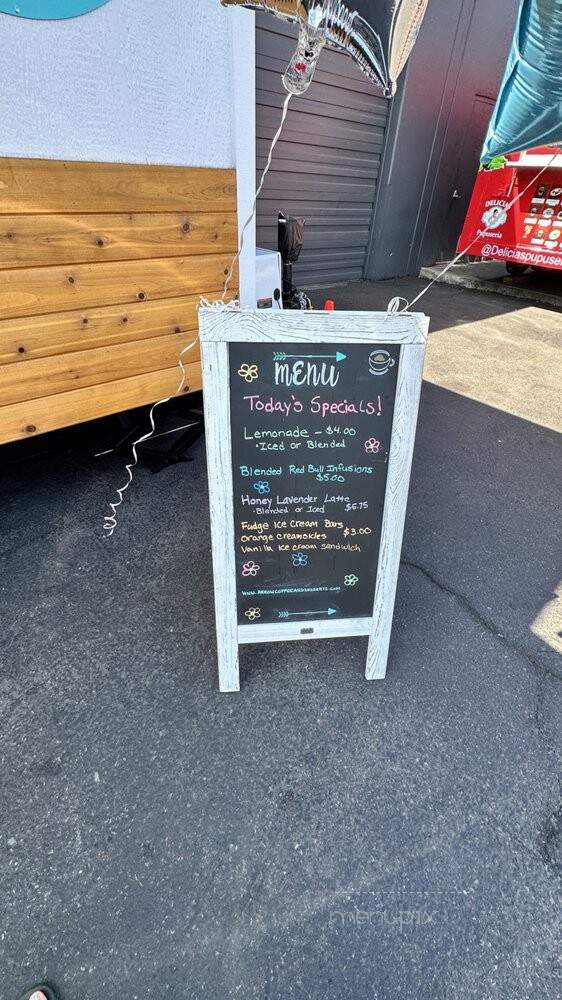 MENU
Today's Specials!
Lemonade - $4.00
• Iced or Blended
Blended Red Bull Infusions
$5.00
Honey Lavender Latte
• Blended or Iced $5.75
Fudge Ice Cream Bars
Orange Creamsicles $3.00
Vanilla ice cream sandwich
www.arrowcoffeeanddesserts.com
DELICIAS
Pupuseria
@Deliciaspupuser
menupix